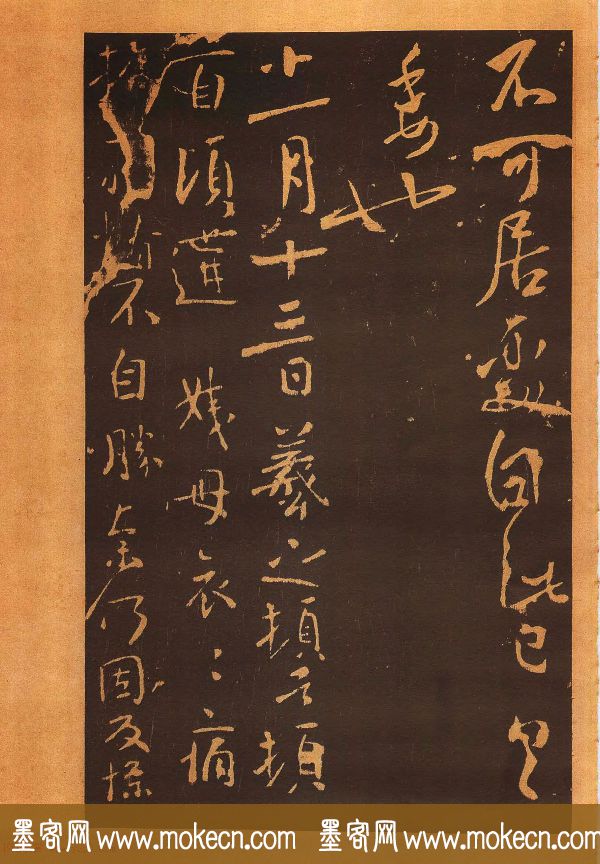 不可居處
委
十一月十三日羲之頓首頓
首頃遘姨母哀〻痛
摧剝情不自勝奈何因反慘
墨客网 www.mokecn.com 墨客网 www.mokecn.com